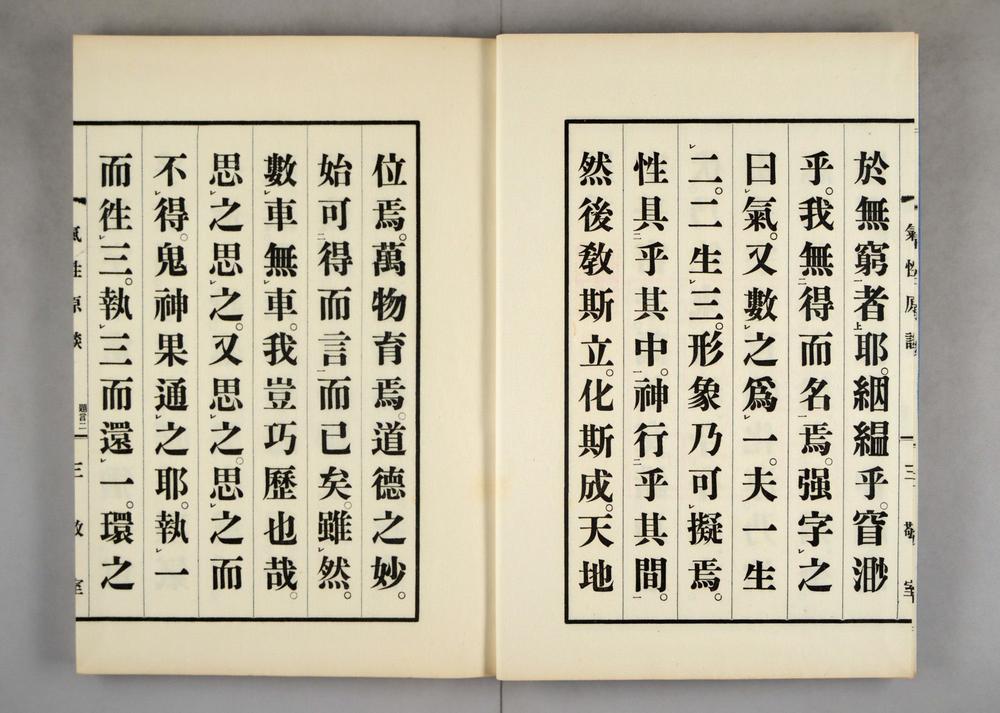 於無窮者耶。絪縕乎。窅渺
乎。我無得而名焉。强字之
曰氣。又數之爲一。夫一生
二。二生三。形象乃可擬焉。
性具乎其中。神行乎其間。
然後敎斯立。化斯成。天地
位焉。萬物育焉。道德之妙。
始可得而言而已矣。雖然。
數車無車。我豈巧歷也哉。
思之思之。又思之。思之而
不得。鬼神果通之耶。執一
而徃三。執三而還一。環之
氣性原談
題言二
三